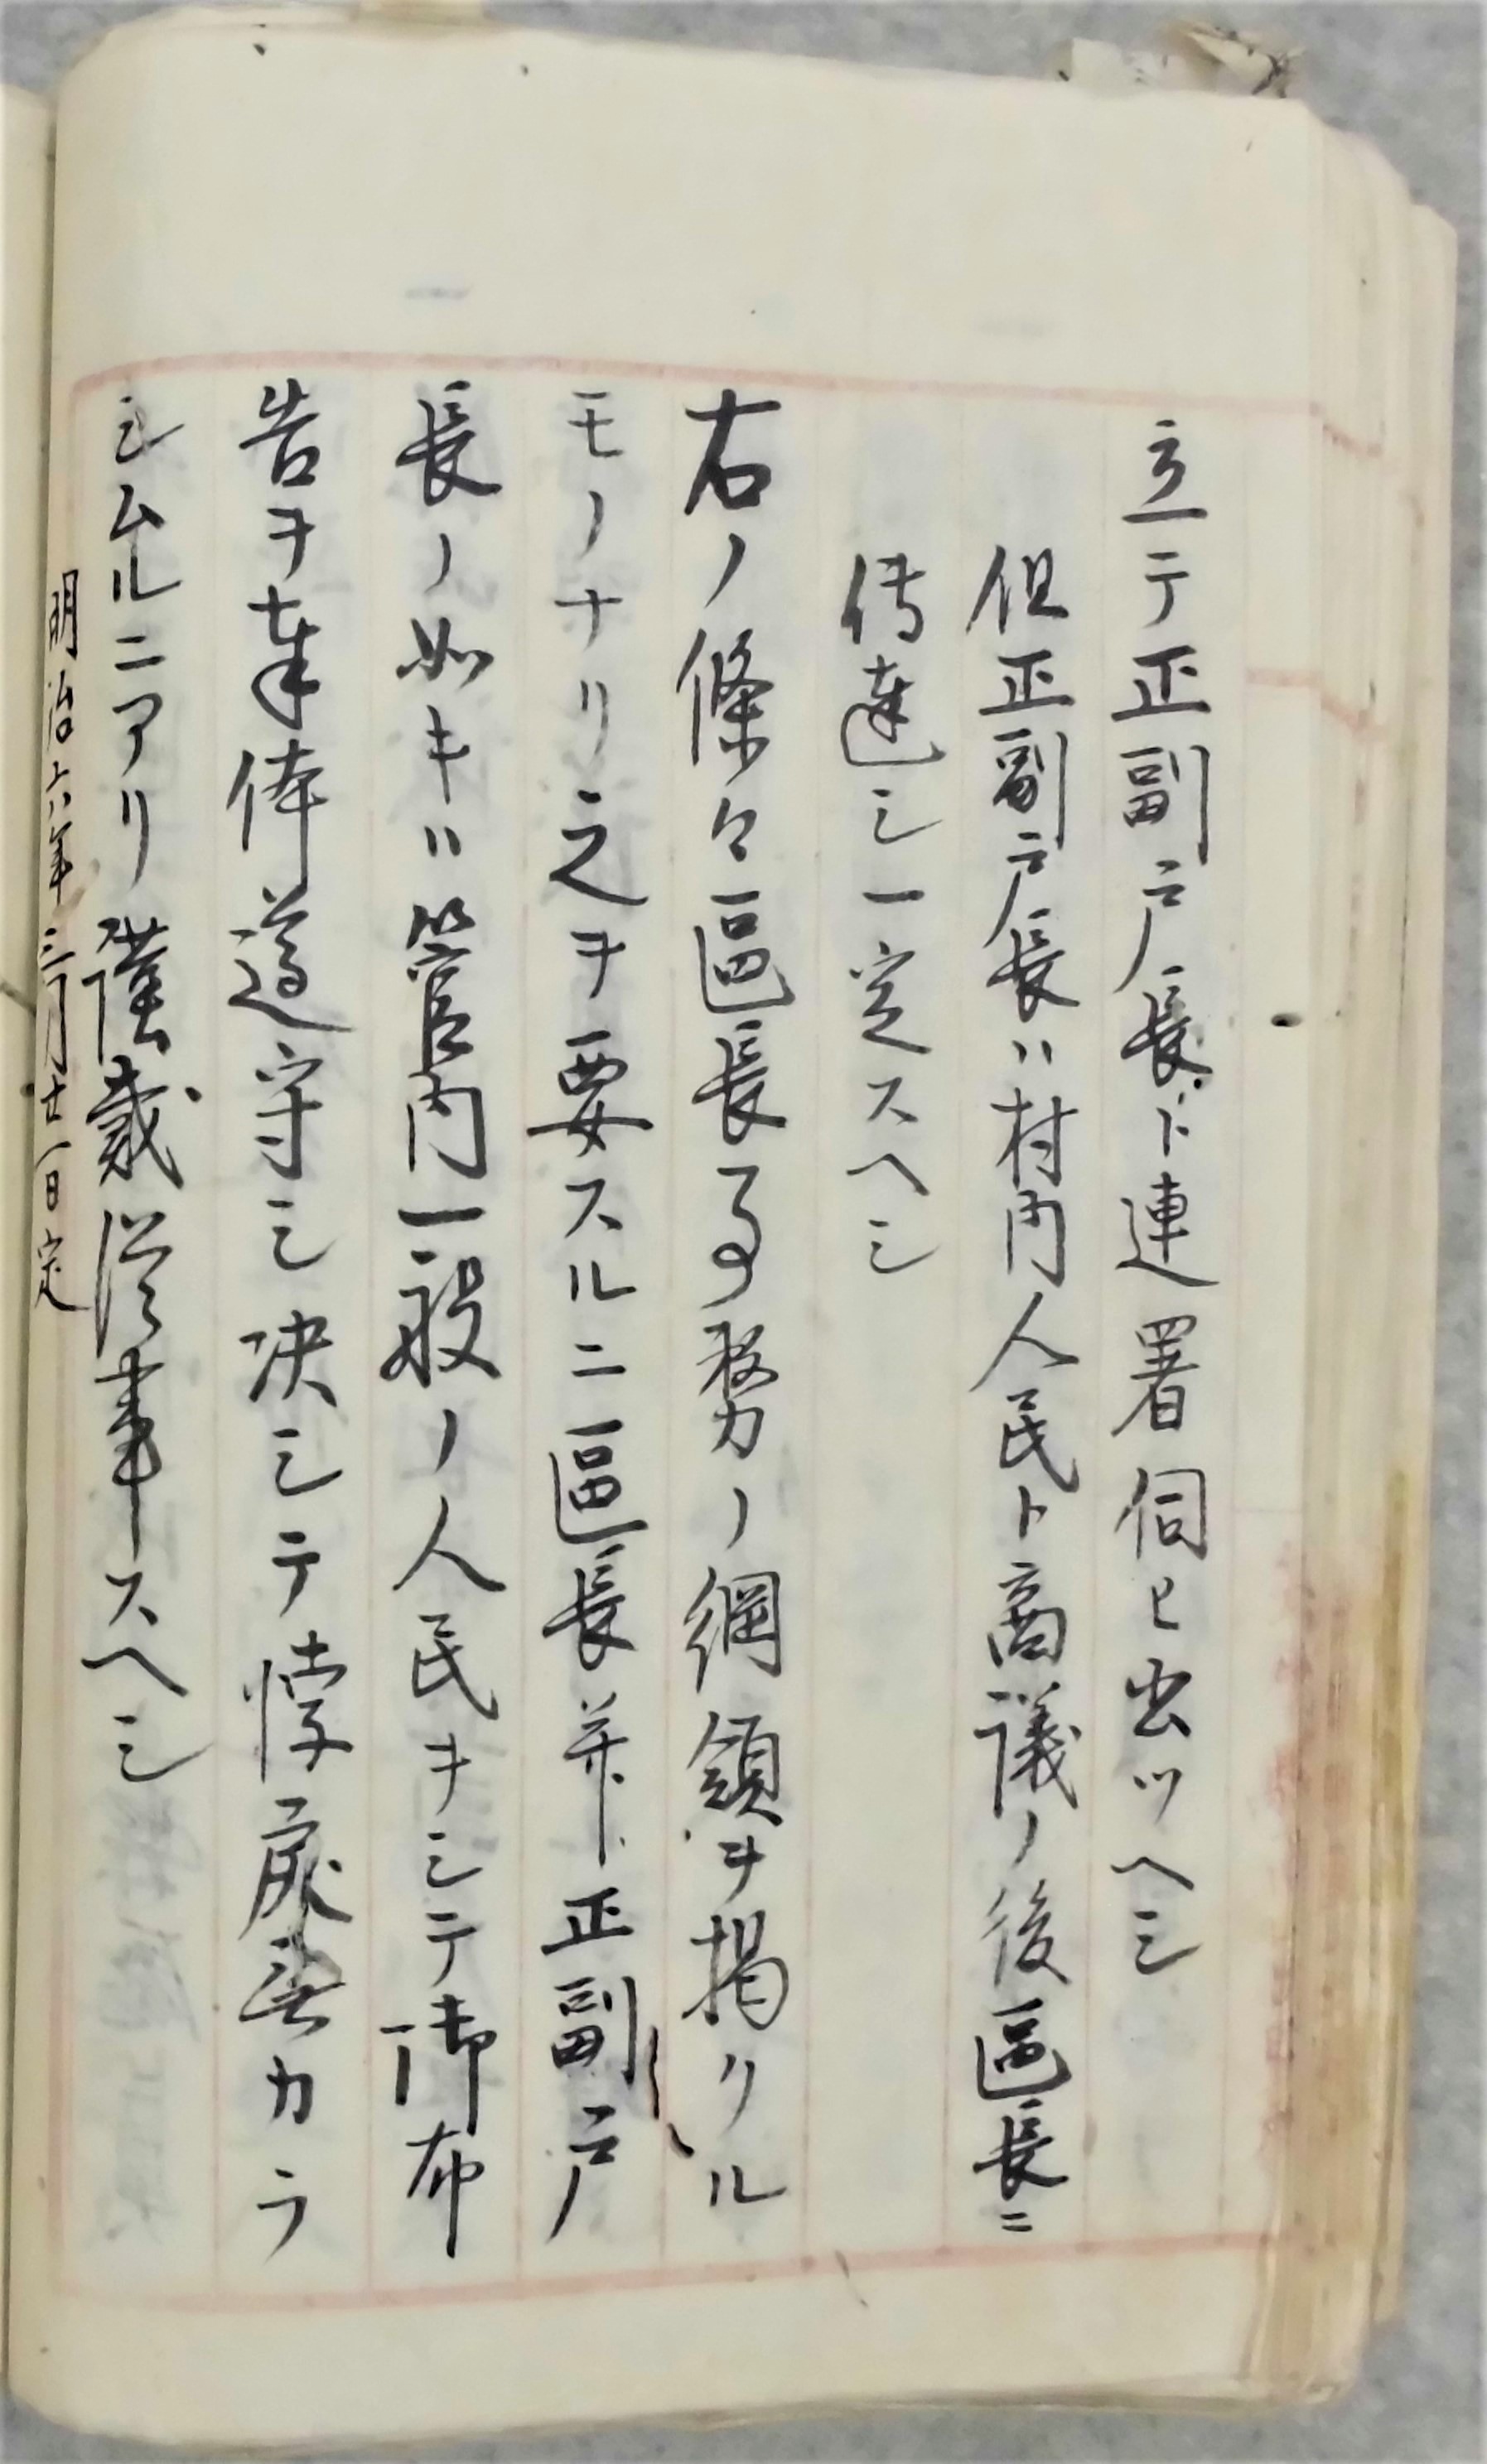 立テ正副戸長ト連署伺ヒ出ツヘシ
但正副戸長ハ村内人民ト商議ノ後區長ニ
傳達シ一定スヘシ
右ノ條々區長事務ノ綱領ヲ掲クル
モノナリ之ヲ要スルニ區長并ニ正副戸
長ノ如キハ管内一般ノ人民ヲシテ御布
告ヲ奉体遵守シ决シテ悖戻無カラ
シムルニアリ謹戒従事スヘシ
明治六年三月廿一日定